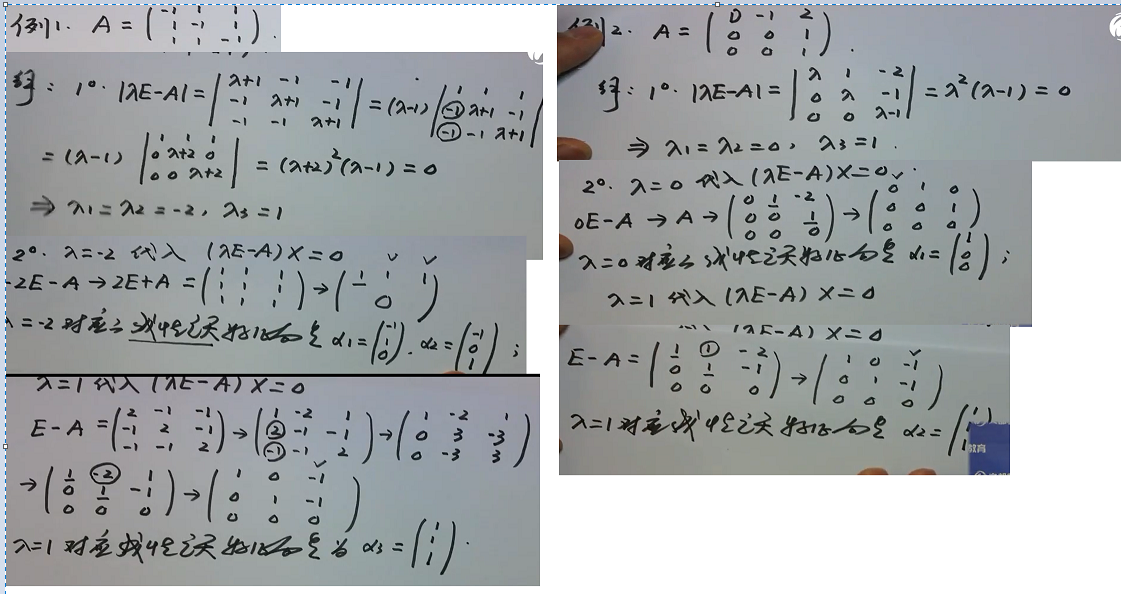 例1. A = (-1 1 1
1 -1 1
1 1 -1).
解: 1°. |λE-A| = |λ+1 -1 -1
-1 λ+1 -1
-1 -1 λ+1| = (λ-1) |1 1 1
-1 λ+1 -1
-1 -1 λ+1|
= (λ-1) |1 1 1
0 λ+2 0
0 0 λ+2| = (λ+2)²(λ-1) = 0
⇒ λ1 = λ2 = -2, λ3 = 1
2°. λ=-2 代入 (λE-A)X=0
-2E-A → 2E+A = (1 1 1
1 1 1
1 1 1) → (1 1 1
0)
λ=-2 对应的线性无关特征向量 α1 = (-1
1
0). α2 = (-1
0
1);
λ=1 代入 (λE-A)X=0
E-A = (2 -1 -1
-1 2 -1
-1 -1 2) → (1 -2 1
2 -1 -1
-1 -1 2) → (1 -2 1
0 3 -3
0 -3 3)
→ (1 -2 1
0 1 -1
0 0 0) → (1 0 -1
0 1 -1
0 0 0)
λ=1 对应线性无关特征向量为 α3 = (1
1
1).
例2. A = (0 -1 2
0 0 1
0 0 1).
解: 1°. |λE-A| = |λ 1 -2
0 λ -1
0 0 λ-1| = λ²(λ-1) = 0
⇒ λ1 = λ2 = 0, λ3 = 1.
2°. λ=0 代入 (λE-A)X=0.
0E-A → A → (0 1 -2
0 0 1
0 0 0) → (0 1 0
0 0 1
0 0 0)
λ=0 对应的线性无关特征向量 α1 = (1
0
0);
λ=1 代入 (λE-A)X=0
(λE-A)X=0
E-A = (1 1 -2
0 1 -1
0 0 0) → (1 0 -1
0 1 -1
0 0 0)
λ=1 对应线性无关特征向量 α2 = (1
1
1
教育